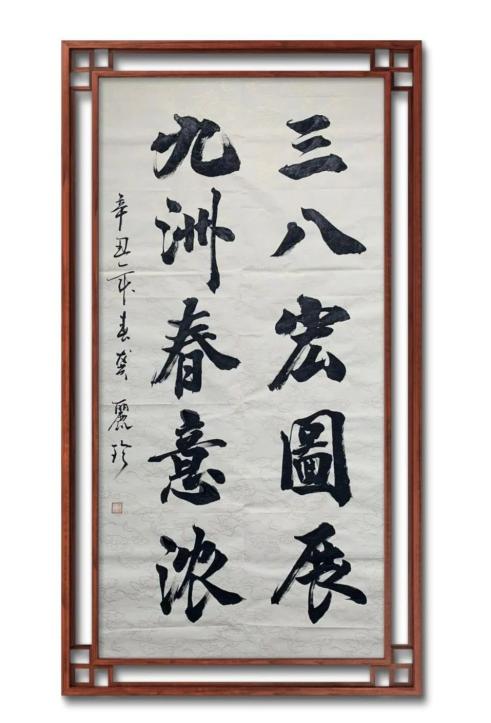 三八宏圖展
九洲春意浓
辛丑年春龚麗珍